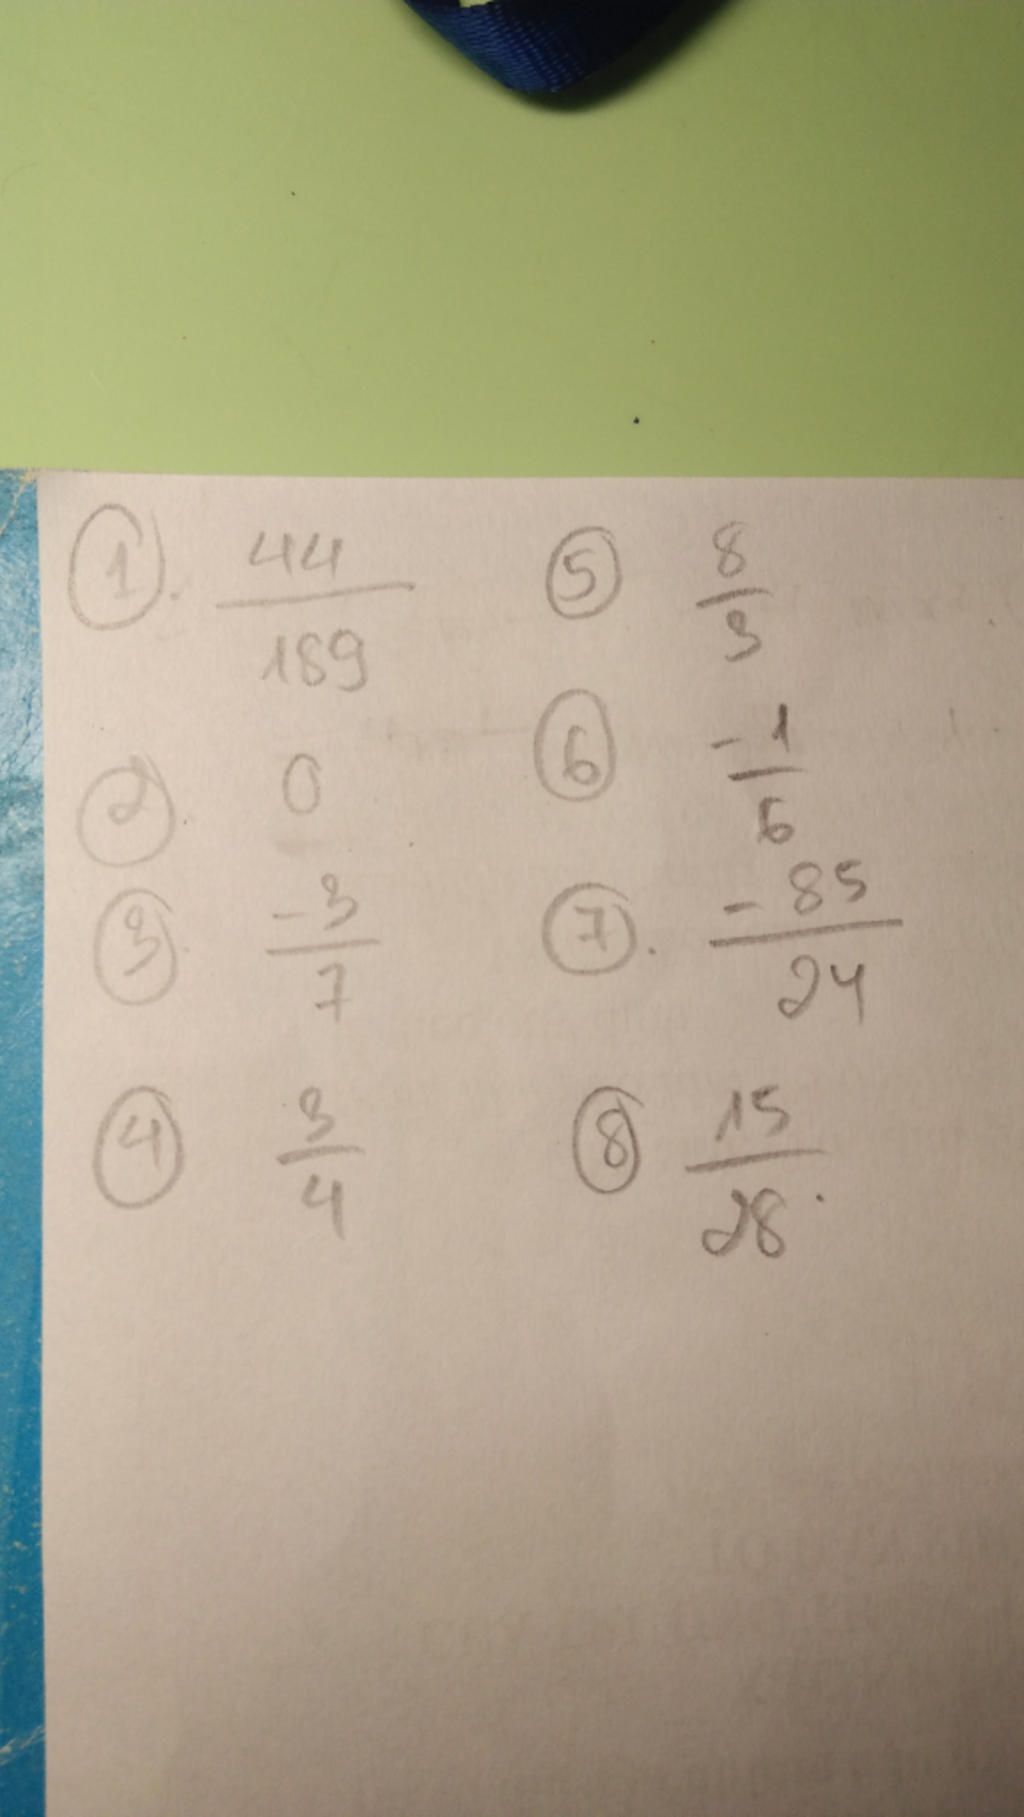 ① . 44/189
② . 0
③ . -3/7
④ 3/4
⑤ 8/3
⑥ -1/6
⑦ . -85/24
⑧ 15/28 .